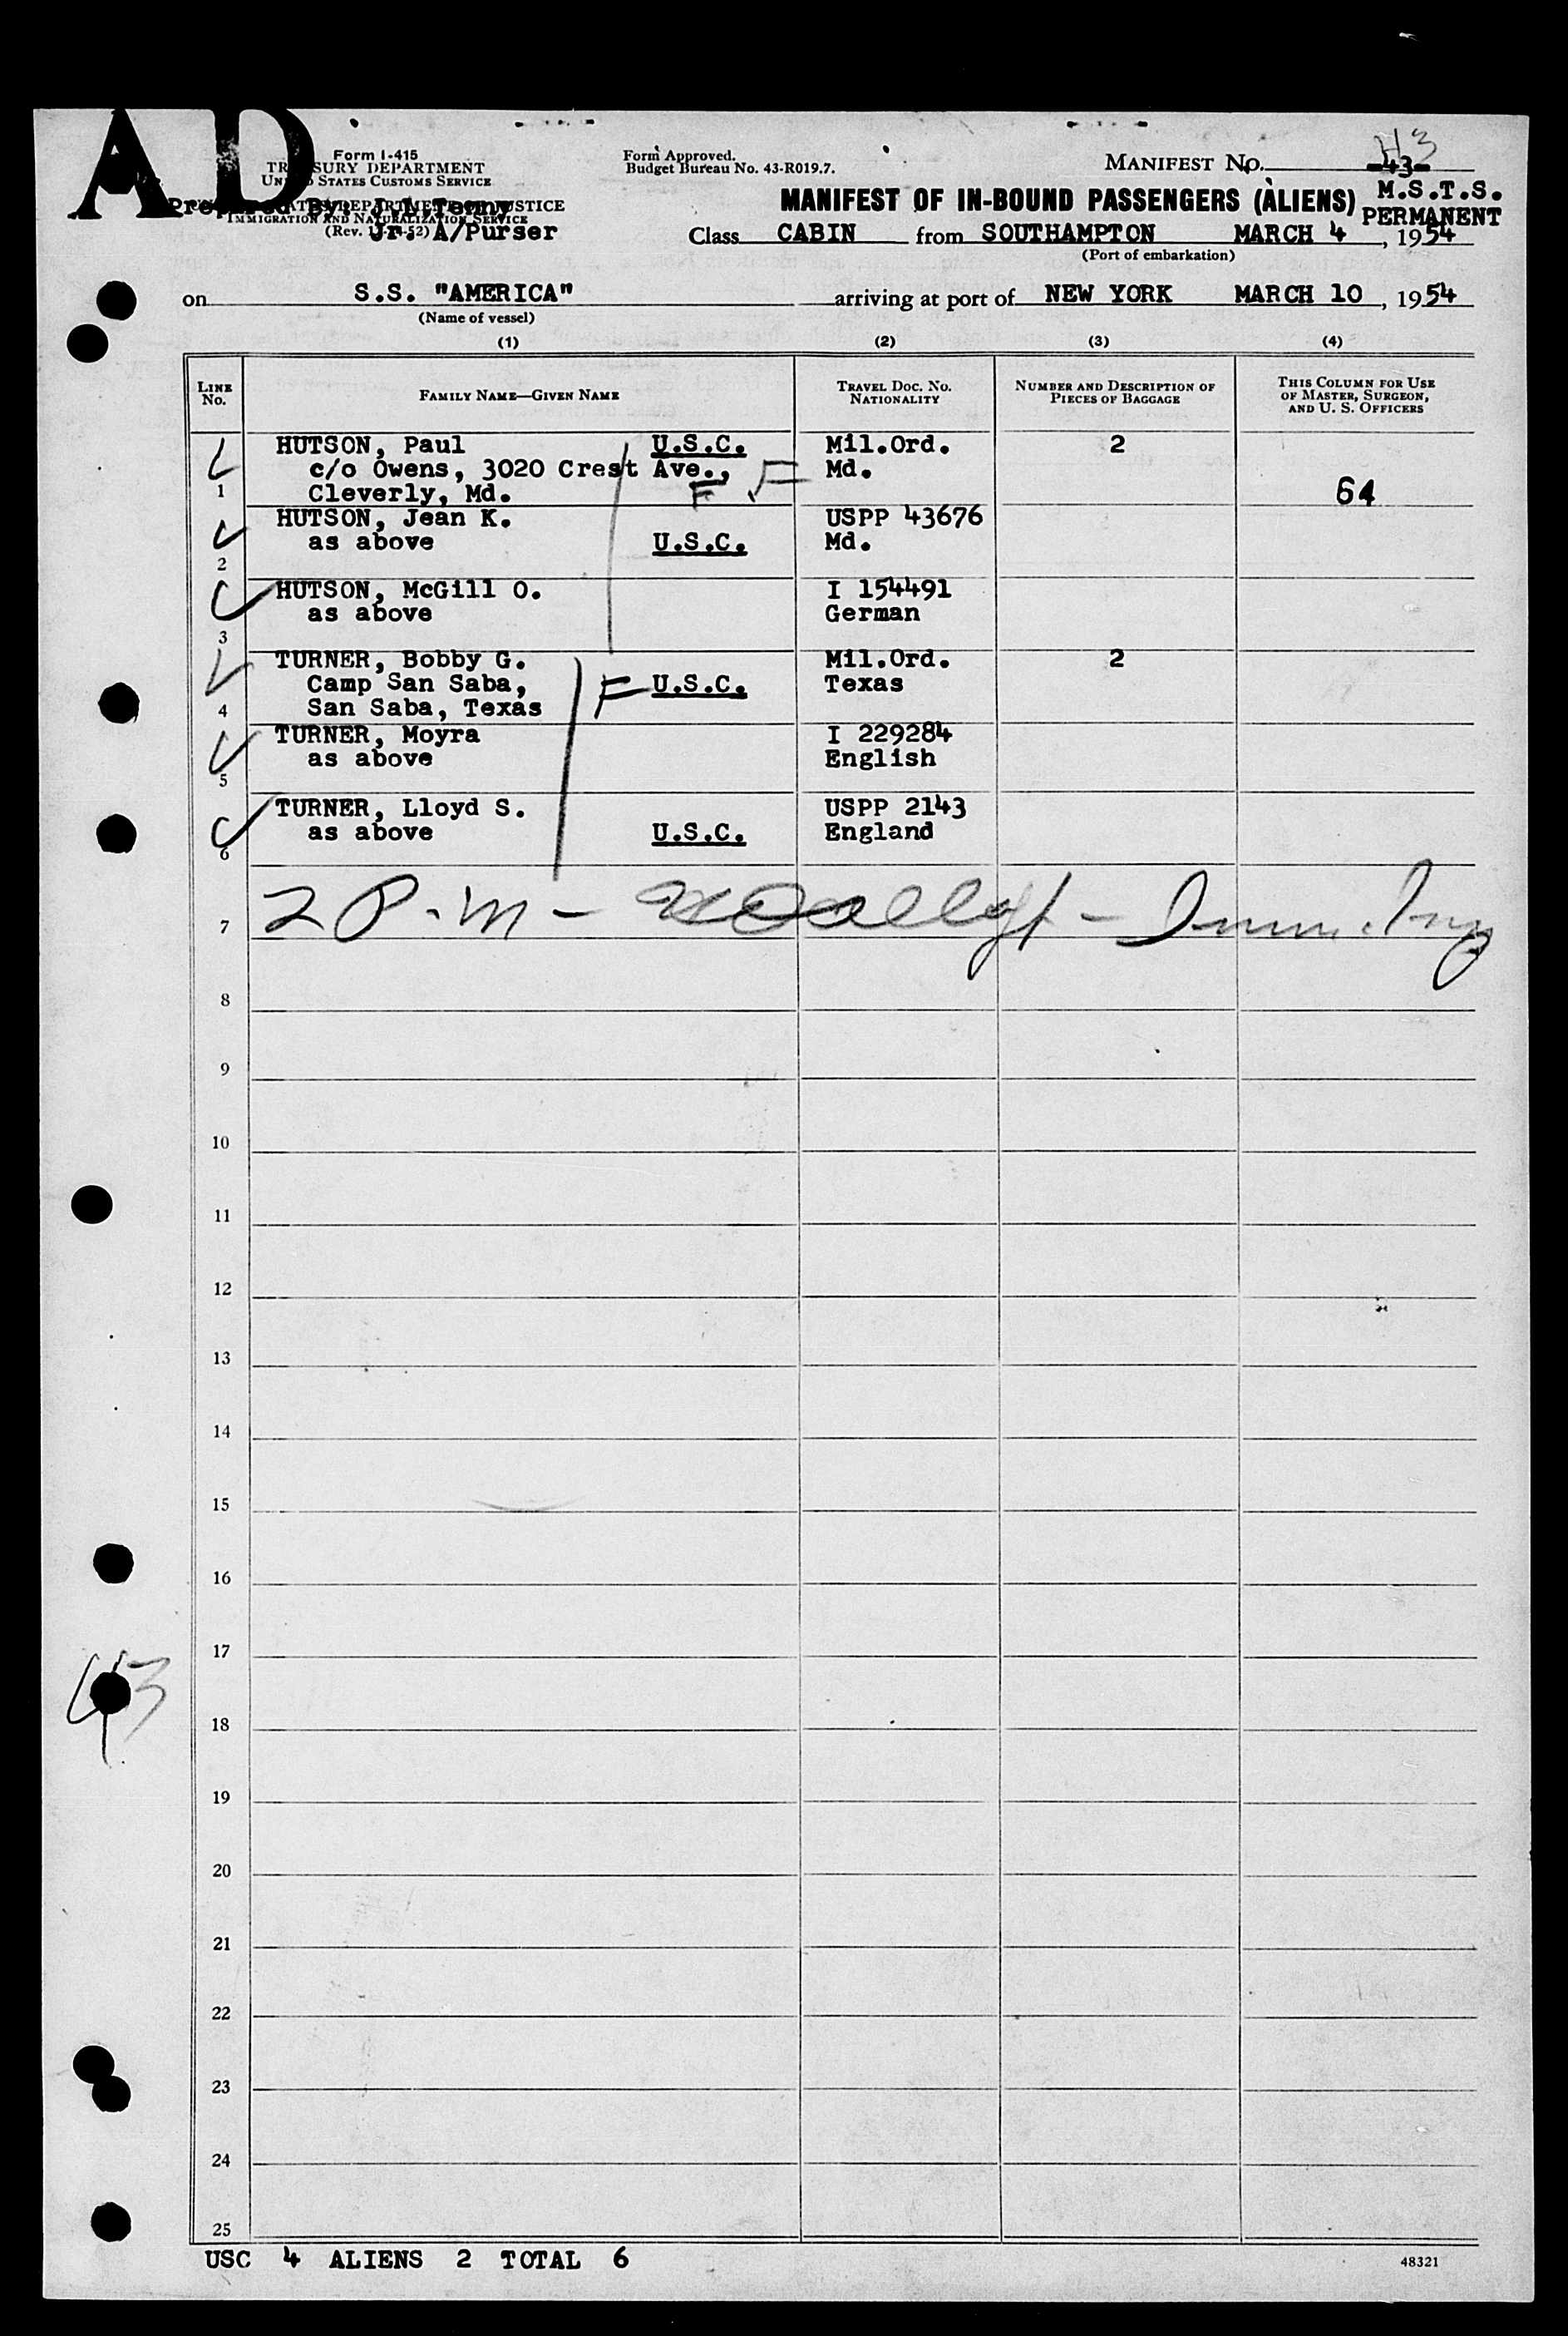 AD
Form I-415
TREASURY DEPARTMENT
UNITED STATES CUSTOMS SERVICE
Prepared By: J.L.Tenny
Jr. A/Purser
IMMIGRATION AND NATURALIZATION SERVICE
Form Approved.
Budget Bureau No. 43-R019.7.
MANIFEST No. -43-
H3
M.S.T.S.
PERMANENT
MANIFEST OF IN-BOUND PASSENGERS (ALIENS)
Class CABIN from SOUTHAMPTON MARCH 4, 1954
(Port of embarkation)
on S.S. "AMERICA" arriving at port of NEW YORK MARCH 10, 1954
(Name of vessel)
(1) (2) (3) (4)
LINE No. FAMILY NAME—GIVEN NAME TRAVEL DOC. No. NATIONALITY NUMBER AND DESCRIPTION OF PIECES OF BAGGAGE THIS COLUMN FOR USE OF MASTER, SURGEON, AND U. S. OFFICERS
HUTSON, Paul U.S.C. Mil.Ord. 2
c/o Owens, 3020 Crest Ave., F Md.
1 Cleverly, Md. F 64
HUTSON, Jean K. USPP 43676
as above U.S.C. Md.
2
HUTSON, McGill O. I 154491
as above German
3
TURNER, Bobby G. Mil.Ord. 2
Camp San Saba, F U.S.C. Texas
4 San Saba, Texas
TURNER, Moyra I 229284
as above English
5
TURNER, Lloyd S. USPP 2143
as above U.S.C. England
6
7 2 P.M - Imm. Insp
8
9
10
11
12
13
14
15
16
17
43
18
19
20
21
22
23
24
25
USC 4 ALIENS 2 TOTAL 6
48321